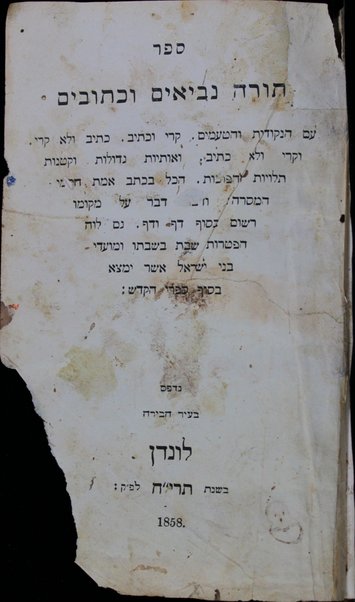 ספר
תורה נביאים וכתובים
עם הנקודות והטעמים. קרי וכתיב. כתיב ולא קרי.
וקרי ולא כתיב; ואותיות גדולות וקטנות
תלויות והפוכות. הכל בכתב אמת
המסרה דבר על מקומו
רשום בסוף דף ודף. גם לוח
הפטרות שבת בשבתו ומועדי
בני ישראל אשר ימצא
בסוף ספרי הקדש:
נדפס
בעיר הבירה
לונדן
בשנת תרי״ח לפ״ק:
1858.